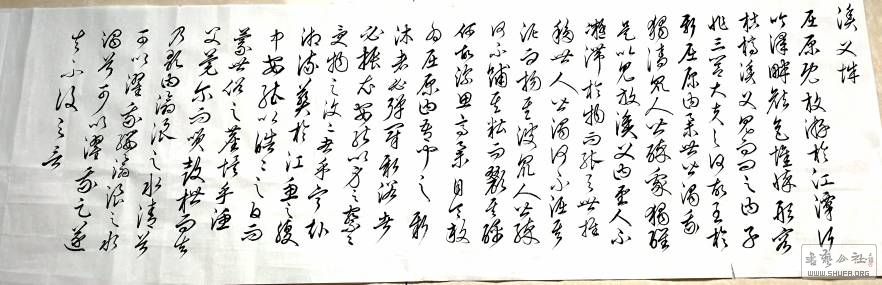 漁父辭
屈原既放游於江潭行
吟澤畔顏色憔悴形容
枯槁漁父見而問之曰子
非三閭大夫與何故至於
斯屈原曰舉世皆濁我
獨清眾人皆醉我獨醒
是以見放漁父曰聖人不
凝滯於物而能與世推
移世人皆濁何不淈其
泥而揚其波眾人皆醉
何不餔其糟而歠其醨
何故深思高舉自令放
為屈原曰吾聞之新
沐者必彈冠新浴者
必振衣安能以身之察察
受物之汶汶者乎寧赴
湘流葬於江魚之腹
中安能以皓皓之白而
蒙世俗之塵埃乎漁
父莞爾而笑鼓枻而去
乃歌曰滄浪之水清兮
可以濯我纓滄浪之水
濁兮可以濯我足遂
去不復與言
书艺公社
WWW.SHUFA.ORG